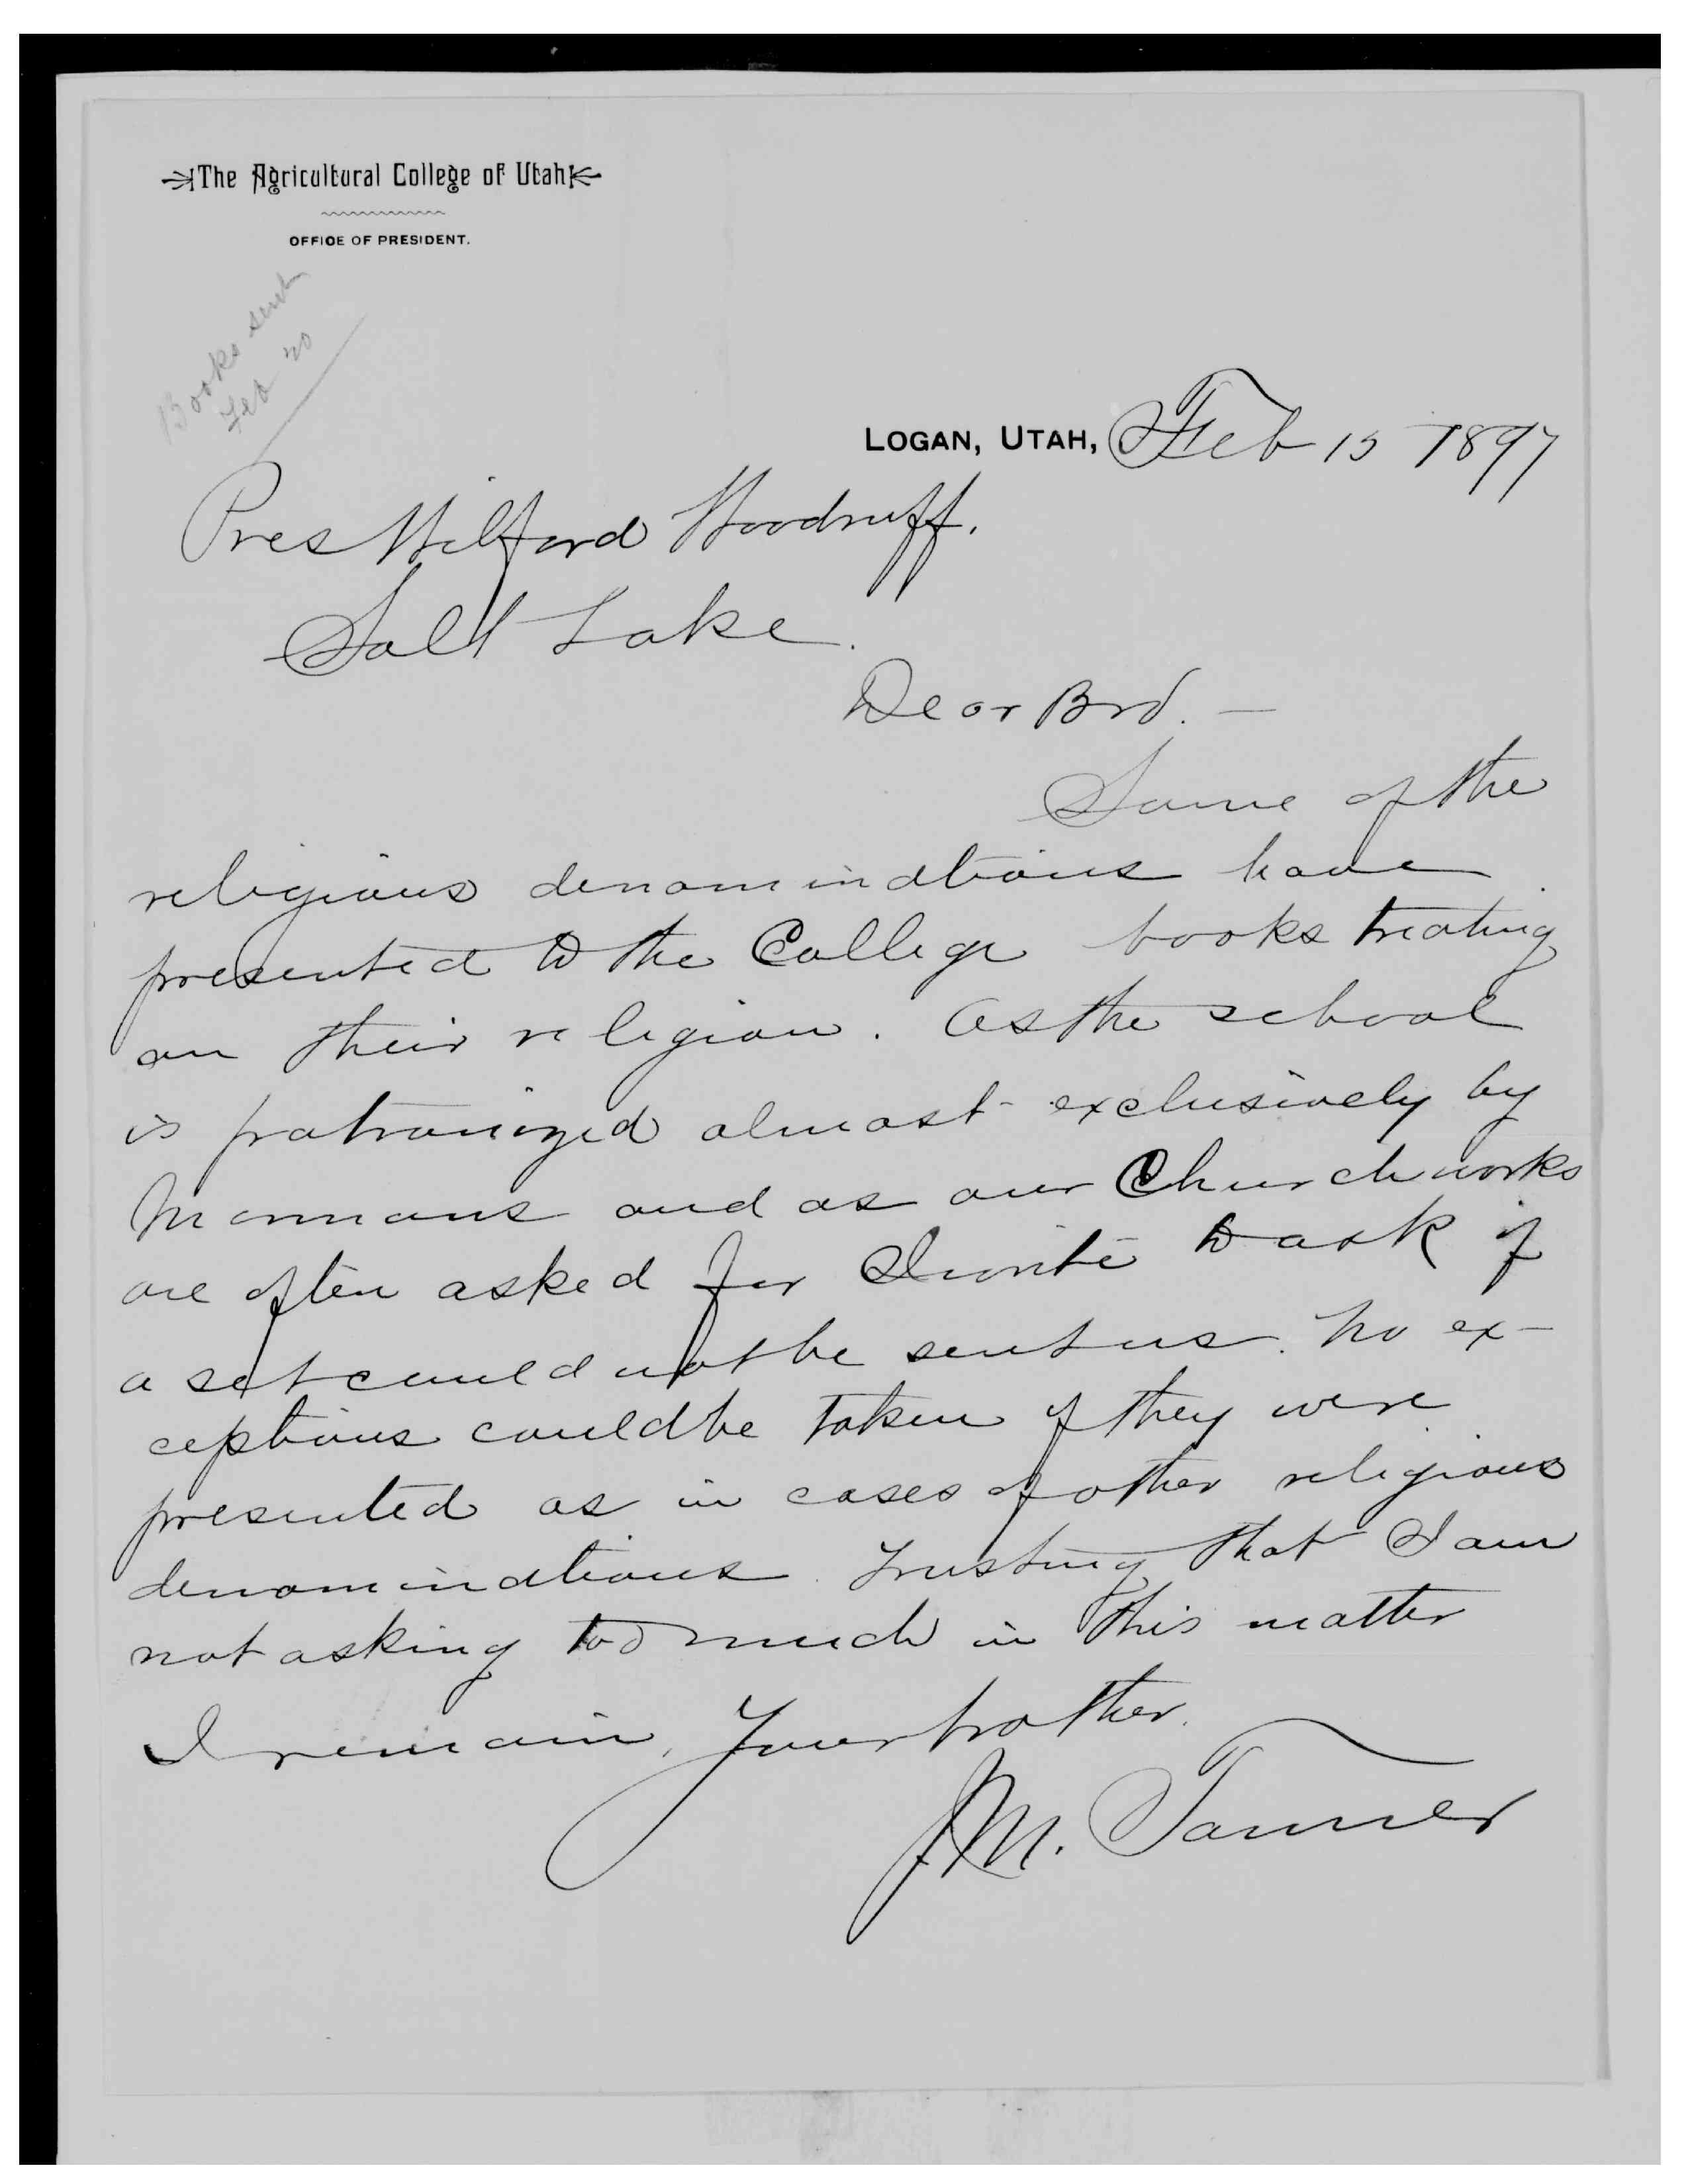 The Agricultural College of Utah
OFFICE OF PRESIDENT.
Books sent
Feb 20
LOGAN, UTAH, Feb 15 1897
Pres Wilford Woodruff.
Salt Lake.
Dear Bro. —
Some of the
religious denominations have
presented to the College books treating
on their religion. As the school
is patronized almost exclusively by
Mormons and as our Church works
are often asked for I write to ask if
a set could not be sent us. No ex-
ceptions could be taken if they were
presented as in cases of other religious
denominations. Trusting that I am
not asking too much in this matter
I remain, Your brother.
J.M. Tanner